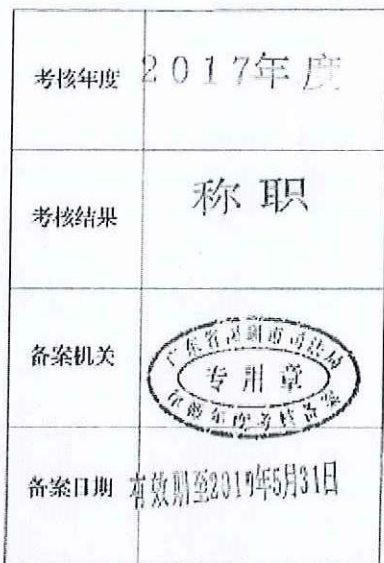 考核年度 2017年度
考核结果 称职
备案机关
广东省深圳市司法局
专用章
律师年度考核备案
备案日期 有效期至2019年5月31日